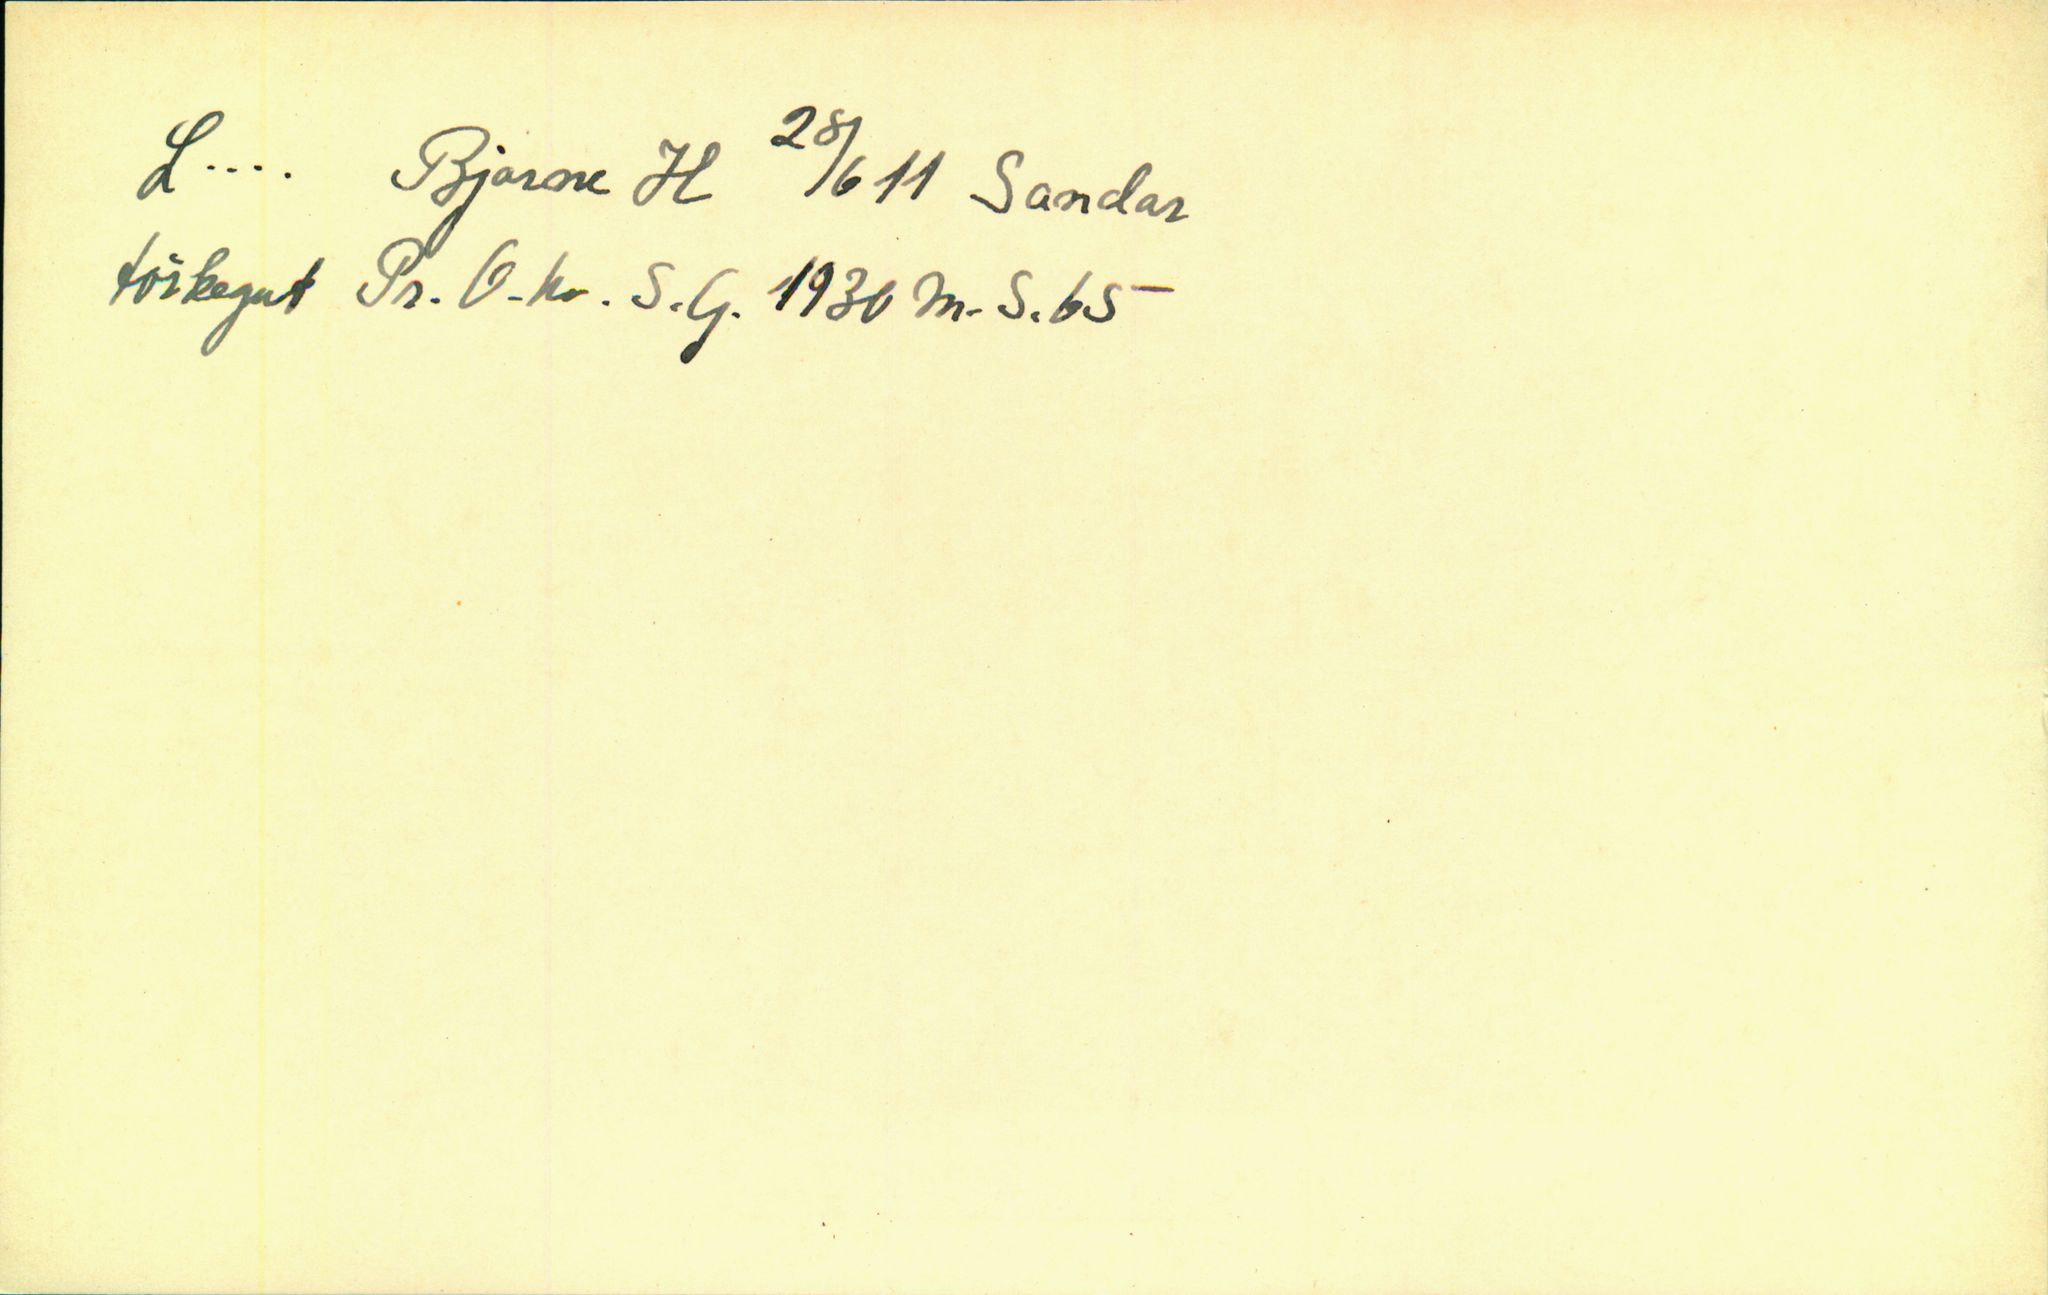 L.... Bjarne H 28/6 11 Sandar
törkegut Pr. O. kv. S.G. 1930 M. S. 65